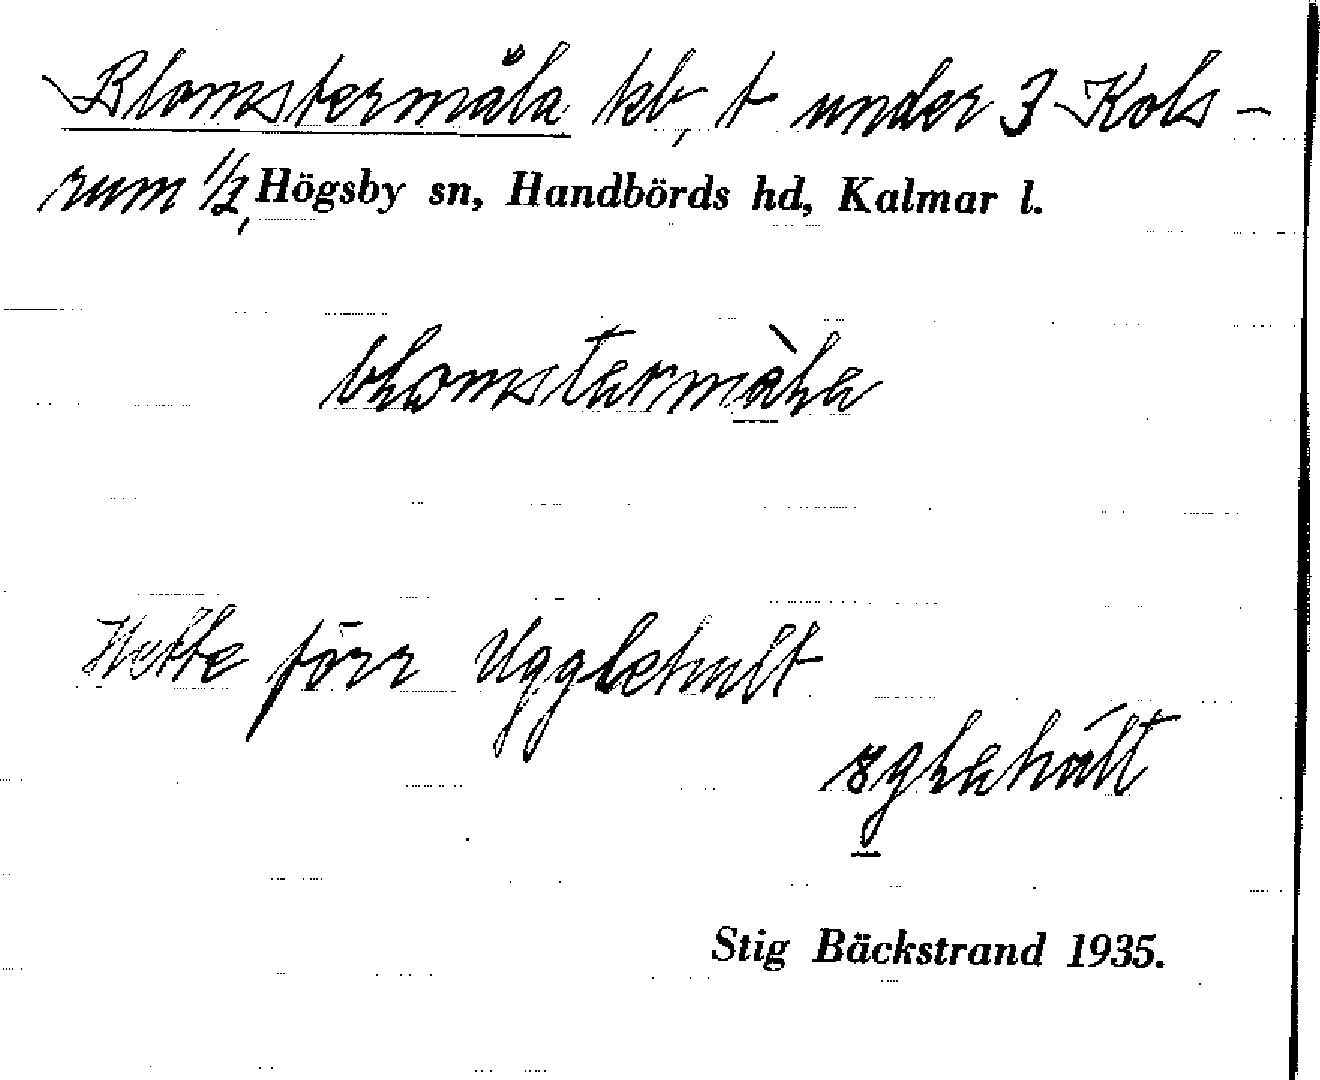 Blomstermåla kb, t under 3 Kols-
rum 1/2, Högsby sn, Handbörds hd, Kalmar l.
blomstermåla
Hette förr Ugglehult
Stig Bäckstrand 1935.